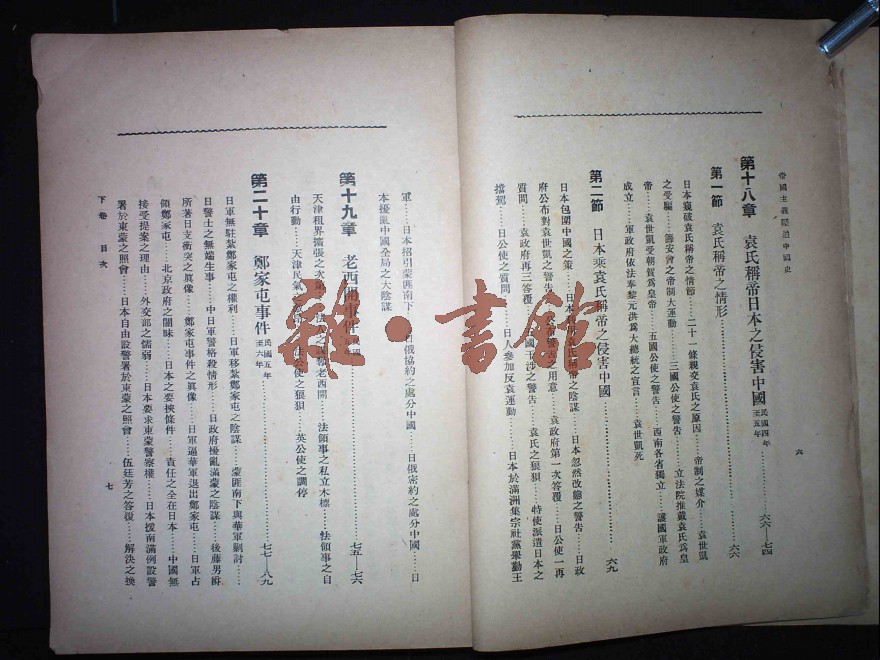 帝國主義壓迫中國史
六
第十八章 袁氏稱帝日本之侵害中國 民國四年至五年……六六—七四
第一節 袁氏稱帝之情形……六六
日本窺破袁氏稱帝之情節……二十一條親交袁氏之原因……帝制之媒介……袁世凱
之受騙……籌安會之帝制大運動……三國公使之警告……立法院推戴袁氏爲皇
帝……袁世凱受朝賀爲皇帝……五國公使之警告……西南各省獨立……護國軍政府
成立……軍政府依法奉黎元洪爲大總統之宣言……袁世凱死
第二節 日本乘袁氏稱帝之侵害中國……六九
日本包圍中國之策……日本 袁氏稱帝之陰謀……日本忽然改態之警告……日政
府公布對袁世凱之警告…… 警告之用意……袁政府第一次答覆……日公使一再
質問……袁政府再三答覆…… 國干涉之警告……袁氏之狼狽……特使派遣日本之
擋搁……日公使之質問……日人參加反袁運動……日本於滿洲集宗社黨舉勤王
軍……日本招引蒙匪南下……日俄協約之處分中國……日俄密約之處分中國……日
本擾亂中國全局之大陰謀
第十九章 老西開事件 ……七五—七六
天津租界擴張之次 ……法 老西開……法領事之私立木標……法領事之自
由行動……天津民氣 ……法公使之狼狽……英公使之調停
第二十章 鄭家屯事件 民國五年至六年……七七—八九
日軍無駐紮鄭家屯之權利……日軍移紮鄭家屯之陰謀……蒙匪南下與華軍剿討……
日警士之無端生事……中日軍警格殺情形……日政府擾亂滿蒙之陰謀……後藤男爵
所著日支衝突之眞像……鄭家屯事件之眞像……日軍逼華軍退出鄭家屯……日軍占
領鄭家屯……北京政府之闇昧……日本之要挾條件……責任之全在日本……中國無
接受提案之理由……外交部之懦弱……日本要求東蒙警察權……日本援南滿例設警
署於東蒙之照會……日本自由設警署於東蒙之照會……伍廷芳之答覆……解決之換
下卷 目次
七
雜·書館